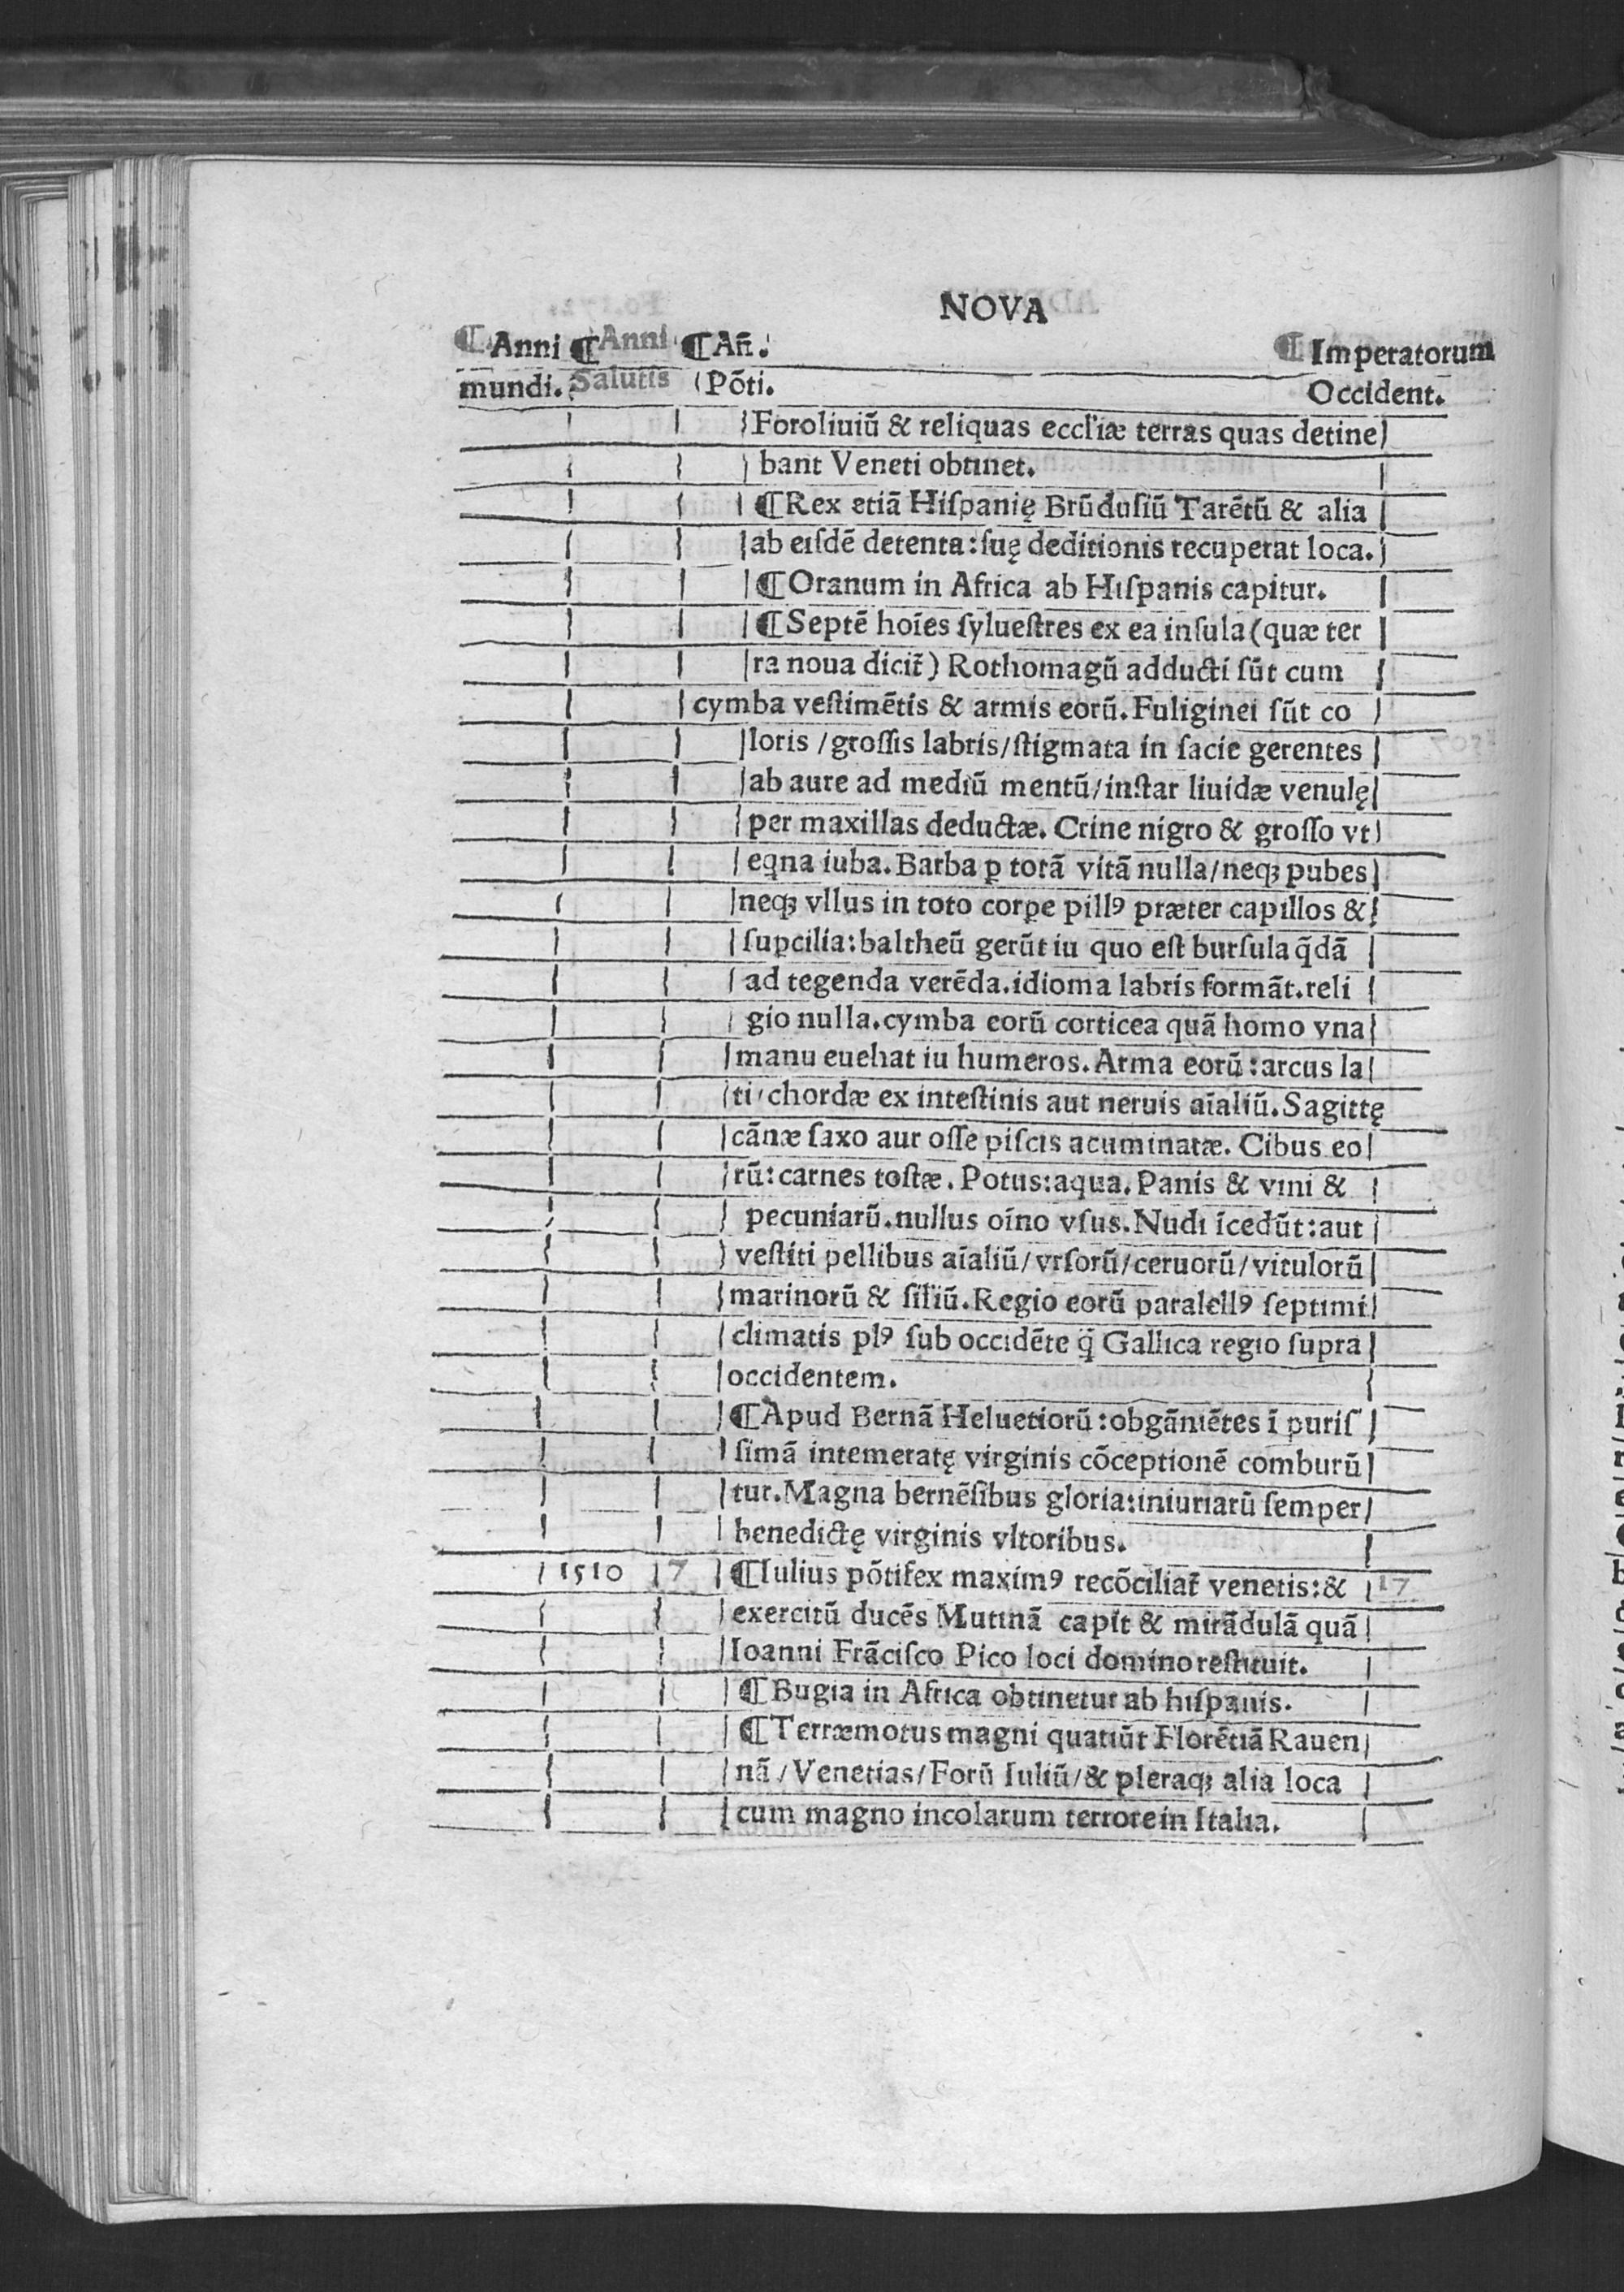 NOVA
¶Anni ¶Anni ¶Añ. ¶Imperatorum
mundi. Salutis Põti. Occident.
Foroliuiũ & reliquas eccl'iæ terras quas detine
bant Veneti obtinet.
¶Rex etiã Hiſpanię Brũduſiũ Tarẽtũ & alia
ab eiſdẽ detenta: ſuę deditionis recuperat loca.
¶Oranum in Africa ab Hiſpanis capitur.
¶Septẽ hoīes ſylueſtres ex ea inſula (quæ ter
ra noua dicit̃) Rothomagũ adducti ſũt cum
cymba veſtimẽtis & armis eorũ. Fuliginei ſũt co
loris / groſſis labris / ſtigmata in facie gerentes
ab aure ad mediũ mentũ / inſtar liuidæ venulę
per maxillas deductæ. Crine nigro & groſſo vt
eq̃na iuba. Barba ꝑ totã vitã nulla / neqꝫ pubes
neqꝫ vllus in toto corpe pillꝰ præter capillos &
ſuꝑcilia: baltheũ gerũt iu quo eſt burſula q̃dã
ad tegenda verẽda. idioma labris formãt. reli
gio nulla. cymba eorũ corticea quã homo vna
manu euehat iu humeros. Arma eorũ: arcus la
ti / chordæ ex inteſtinis aut neruis aīaliũ. Sagittę
cãnæ ſaxo aut oſſe piſcis acuminatæ. Cibus eo
rũ: carnes toſtæ. Potus: aqua. Panis & vini &
pecuniarũ. nullus oīno vſus. Nudi īcedũt: aut
veſtiti pellibus aīaliũ / vrſorũ / ceruorũ / vitulorũ
marinorũ & ſil'iũ. Regio eorũ paralellꝰ ſeptimi
climatis plꝰ ſub occidẽte q̃ Gallica regio ſupra
occidentem.
¶Apud Bernã Heluetiorũ: obgãniẽtes ī puriſ
ſimã intemeratę virginis cõceptionẽ comburũ
tur. Magna bernẽſibus gloria: iniuriarũ ſemper
benedictę virginis vltoribus.
1510 7 ¶Iulius põtifex maximꝰ recõciliat̃ venetis: & 17
exercitũ ducẽs Mutinã capit & mirãdulã quã
Ioanni Frãciſco Pico loci domino reſtituit.
¶Bugia in Africa obtinetur ab hiſpanis.
¶Terræmotus magni quatiũt Florẽtiã Rauen
nã / Venetias / Forũ Iuliũ / & pleraqꝫ alia loca
cum magno incolarum terrore in Italia.